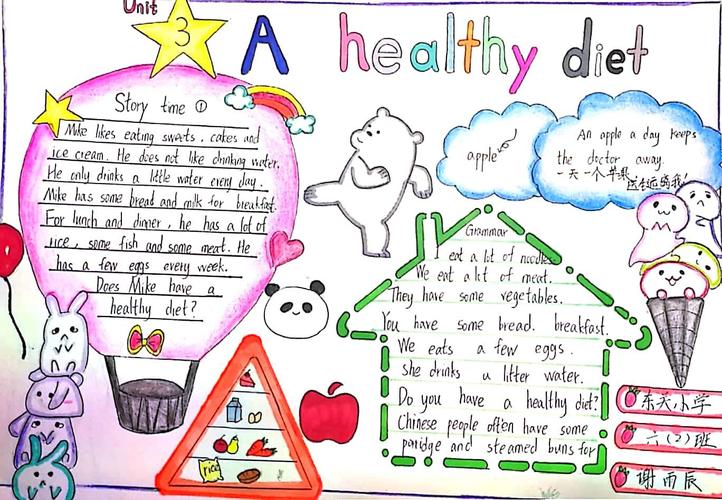 Unit
3
A healthy diet
Story time ①
Mike likes eating sweets, cakes and
ice cream. He does not like drinking water.
He only drinks a little water every day.
Mike has some bread and milk for breakfast.
For lunch and dinner, he has a lot of
rice, some fish and some meat. He
has a few eggs every week.
Does Mike have a
healthy diet?
apple
An apple a day keeps
the doctor away.
一天一个苹果
医生远离我!
Grammar
I eat a lot of noodles
We eat a lot of meat.
They have some vegetables.
You have some bread. breakfast.
We eats a few eggs.
She drinks a litter water.
Do you have a healthy diet?
Chinese people often have some
poridge and steamed buns for
rice
东关小学
六(2)班
谢雨辰